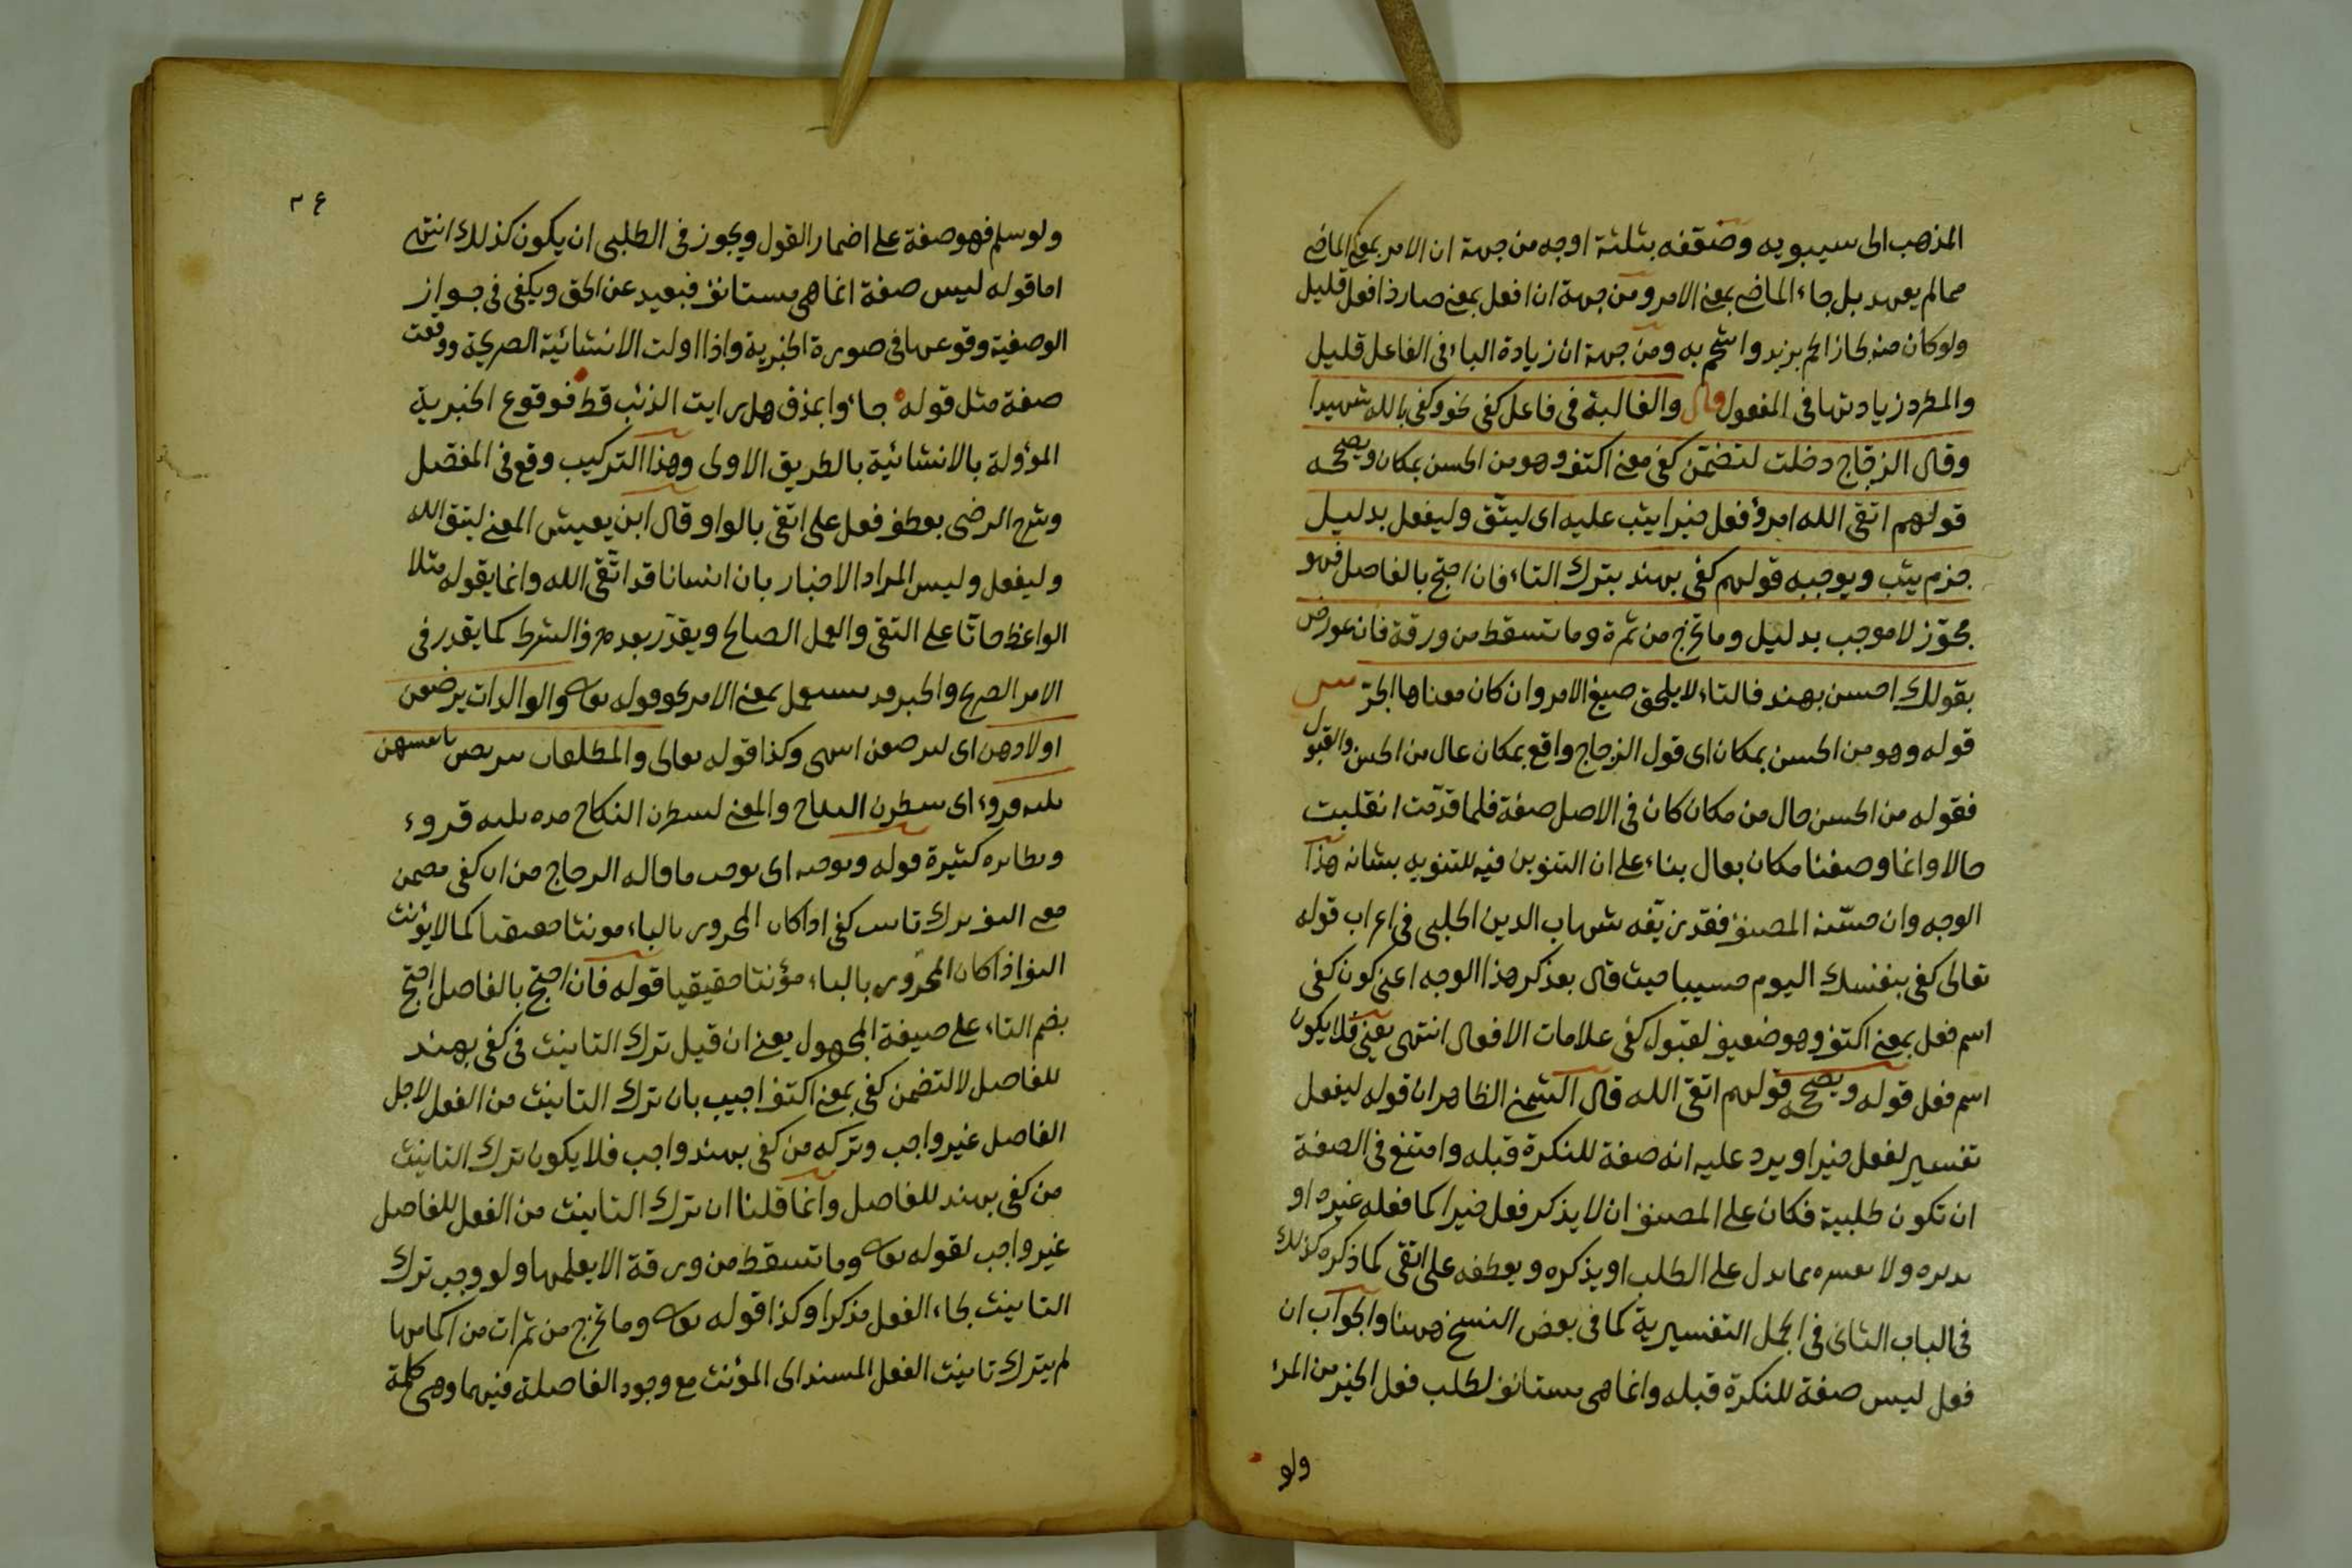 المذهب الى سيبويه وضعفه بثلثة اوجه من جهة ان الامر بمعنى الماضى
مما لم يعهد بل جاء الماضى بمعنى الامر ومن جهة ان افعل بمعنى صار ذا فعل قليل
ولو كان منه لجاز الحم بزيد واشحم به ومن جهة ان زيادة الباء فى الفاعل قليل
والمطرد زيادتها فى المفعول قال والغالبة فى فاعل كفى نحو وكفى بالله شهيدا
وقال الزجّاج دخلت لتضمّن كفى معنى اكتف وهو من الحسن بمكان ويصحّحه
قولهم اتقى الله امرؤ فعل خيرا يثب عليه اى ليتّق وليفعل بدليل
جزم يثب ويوجبه قولهم كفى بهند بترك التاء فان احتج بالفاصل فهو
مجوّز لا موجب بدليل وما تخرج من ثمرة وما تسقط من ورقة فان عورض
بقولك احسن بهند فالتاء لا يلحق صيغ الامر وان كان معناها الخبر
قوله وهو من الحسن بمكان اى قول الزجاج واقع بمكان عال من الحسن والقبول
فقوله من الحسن حال من مكان كان فى الاصل صفة فلما قدّمت انقلبت
حالا وانما وصفنا مكان بعال بناء على ان التنوين فيه للتنويه بشانه هذا
الوجه وان حسّنه المصنف فقد زيّفه شهاب الدين الحلبى فى اعراب قوله
تعالى كفى بنفسك اليوم حسيبا حيث قال بعد ذكر هذا الوجه اعنى كون كفى
اسم فعل بمعنى اكتف وهو ضعيف لقبول كفى علامات الافعال انتهى يعنى فلا يكون
اسم فعل قوله ويصحّحه قولهم اتقى الله قال الشمنى الظاهر ان قوله ليفعل
تفسير لفعل خيرا ويرد عليه انه صفة للنكرة قبله وامتنع فى الصفة
ان تكون طلبية فكان على المصنف ان لا يذكر فعل خيرا كما فعله غيره او
يذكره ولا يفسره بما يدل على الطلب او يذكره ويعطفه على اتقى كما ذكره كذلك
فى الباب الثانى فى الجمل التفسيرية كما فى بعض النسخ ههنا والجواب ان
فعل ليس صفة للنكرة قبله وانما هى مستانف لطلب فعل الخير من المرء
ولو
ولو سلم فهو صفة على اضمار القول ويجوز فى الطلبى ان يكون كذلك انتهى
اما قوله ليس صفة انما هى مستانف فبعيد عن الحق ويكفى فى جواز
الوصفية وقوعها فى صورة الخبرية واذا اولت الانشائية الصريحة ووقعت
صفة مثل قوله جاءوا بمذق هل رايت الذئب قط فوقوع الخبرية
المؤولة بالانشائية بالطريق الاولى وهذا التركيب وقع فى المفصل
وشرح الرضى بعطف فعل على اتقى بالواو وقال ابن يعيش المعنى ليتق الله
وليفعل وليس المراد الاخبار بان انسانا قد اتّقى الله وانما يقوله مثلا
الواعظ حاثّا على التقى والعمل الصالح ويقدّر بعده حرف الشرط كما يقدر فى
الامر الصريح والخبر قد يستعمل بمعنى الامر نحو قوله تعالى والوالدات يرضعن
اولادهن اى ليرضعن انتهى وكذا قوله تعالى والمطلقات يتربصن بانفسهن
ثلثة قروء اى ينتظرن النكاح والمعنى لينتظرن النكاح مدة ثلثة قروء
ونظائره كثيرة قوله ويوجبه اى يوجب ما قاله الزجاج من ان كفى مضمن
معنى اكتف ترك تانيث كفى اذا كان المجرور بالباء مونثا حقيقيا كما لا يؤنث
اكتف اذا كان المجرور بالباء مؤنثا حقيقيا قوله فان احتج بالفاصل احتج
بضم التاء على صيغة المجهول يعنى ان قيل ترك التانيث فى كفى بهند
للفاصل لا لتضمن كفى بمعنى اكتف اجيب بان ترك التانيث من الفعل لاجل
الفاصل غير واجب وتركه من كفى بهند واجب فلا يكون ترك التانيث
من كفى بهند للفاصل وانما قلنا ان ترك التانيث من الفعل للفاصل
غير واجب لقوله تعالى وما تسقط من ورقة الا يعلمها ولو وجب ترك
التانيث لجاء الفعل مذكرا وكذا قوله تعالى وما تخرج من ثمرات من اكمامها
لم يترك تانيث الفعل المسند الى المؤنث مع وجود الفاصلة فيهما وهى كلمة